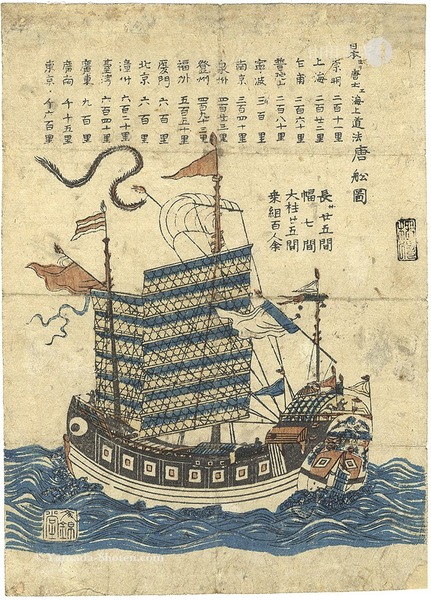 日本ヨリ唐土エ海上道法
唐舩圖
崇明 二百十里
上海 二百廿二里
乍甫 二百六十里
普陀山 二百八十里
寧波 三百里
南京 三百四十里
泉州 四百廿三里
登州
福州 五百五十里
廈門 六百里
北京 六百里
漳州 六百二十里
臺湾 六百四十里
廣東 九百里
廣南 千十五里
東京 千六百里
長 廿五間
幅 七間
大柱 廿五間
乗組百人余
文錦堂